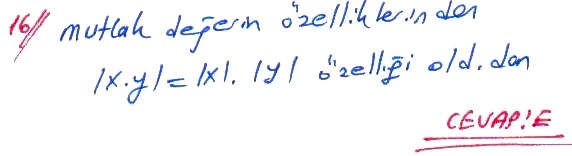 16// mutlak değerin özelliklerinden
|x.y| = |x|. |y| özelliği old.dan
CEVAP:E